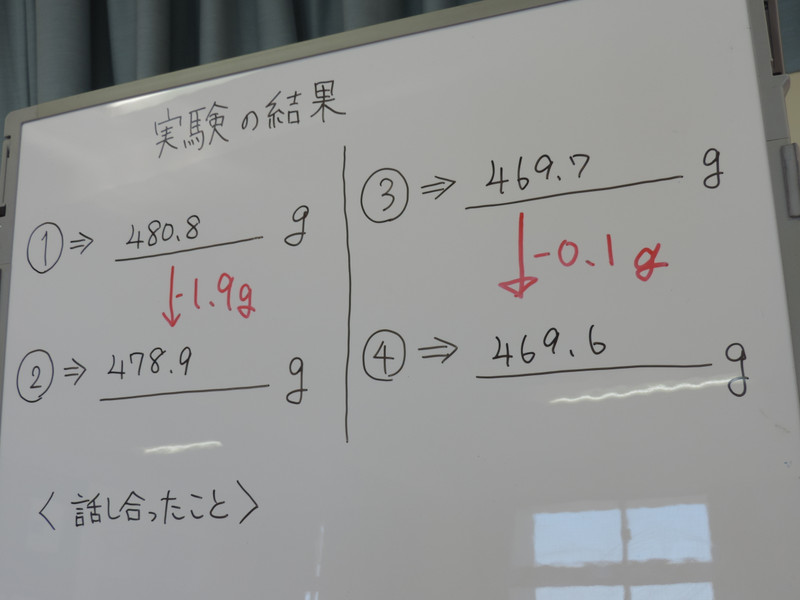 実験の結果
① ⇒ 480.8 g
↓ -1.9g
② ⇒ 478.9 g
③ ⇒ 469.7 g
↓ -0.1g
④ ⇒ 469.6 g
〈話し合ったこと〉